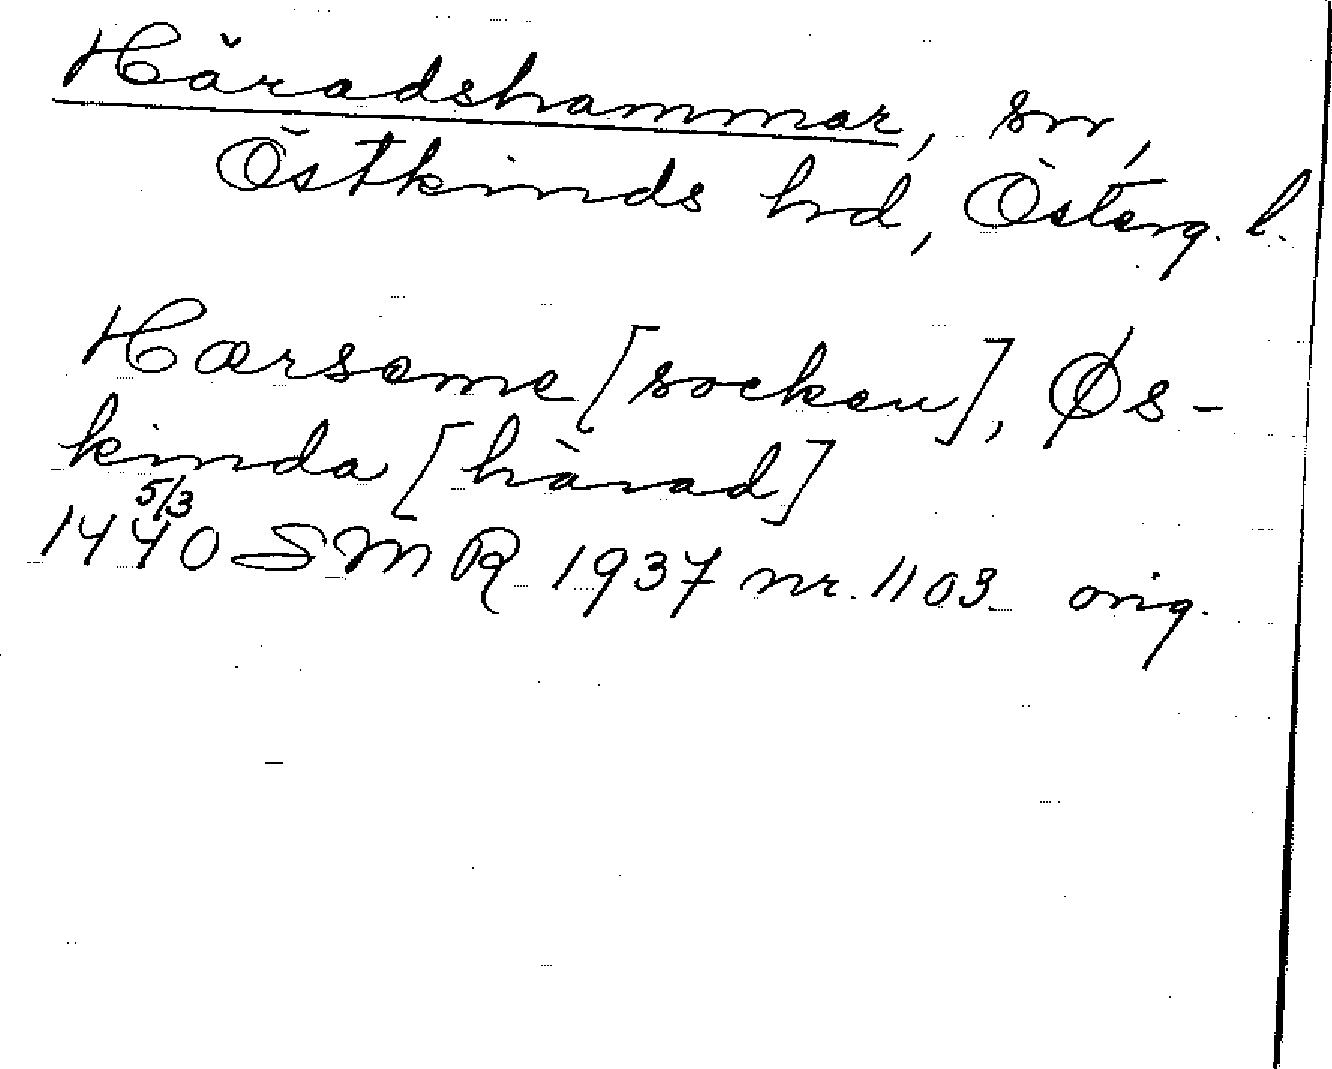 Häradshammar, sn,
Östkinds hd, Österg. l.
Hærseme [socken], Øs-
kinda [härad]
1440 5/3 SMR 1937 nr. 1103 orig.